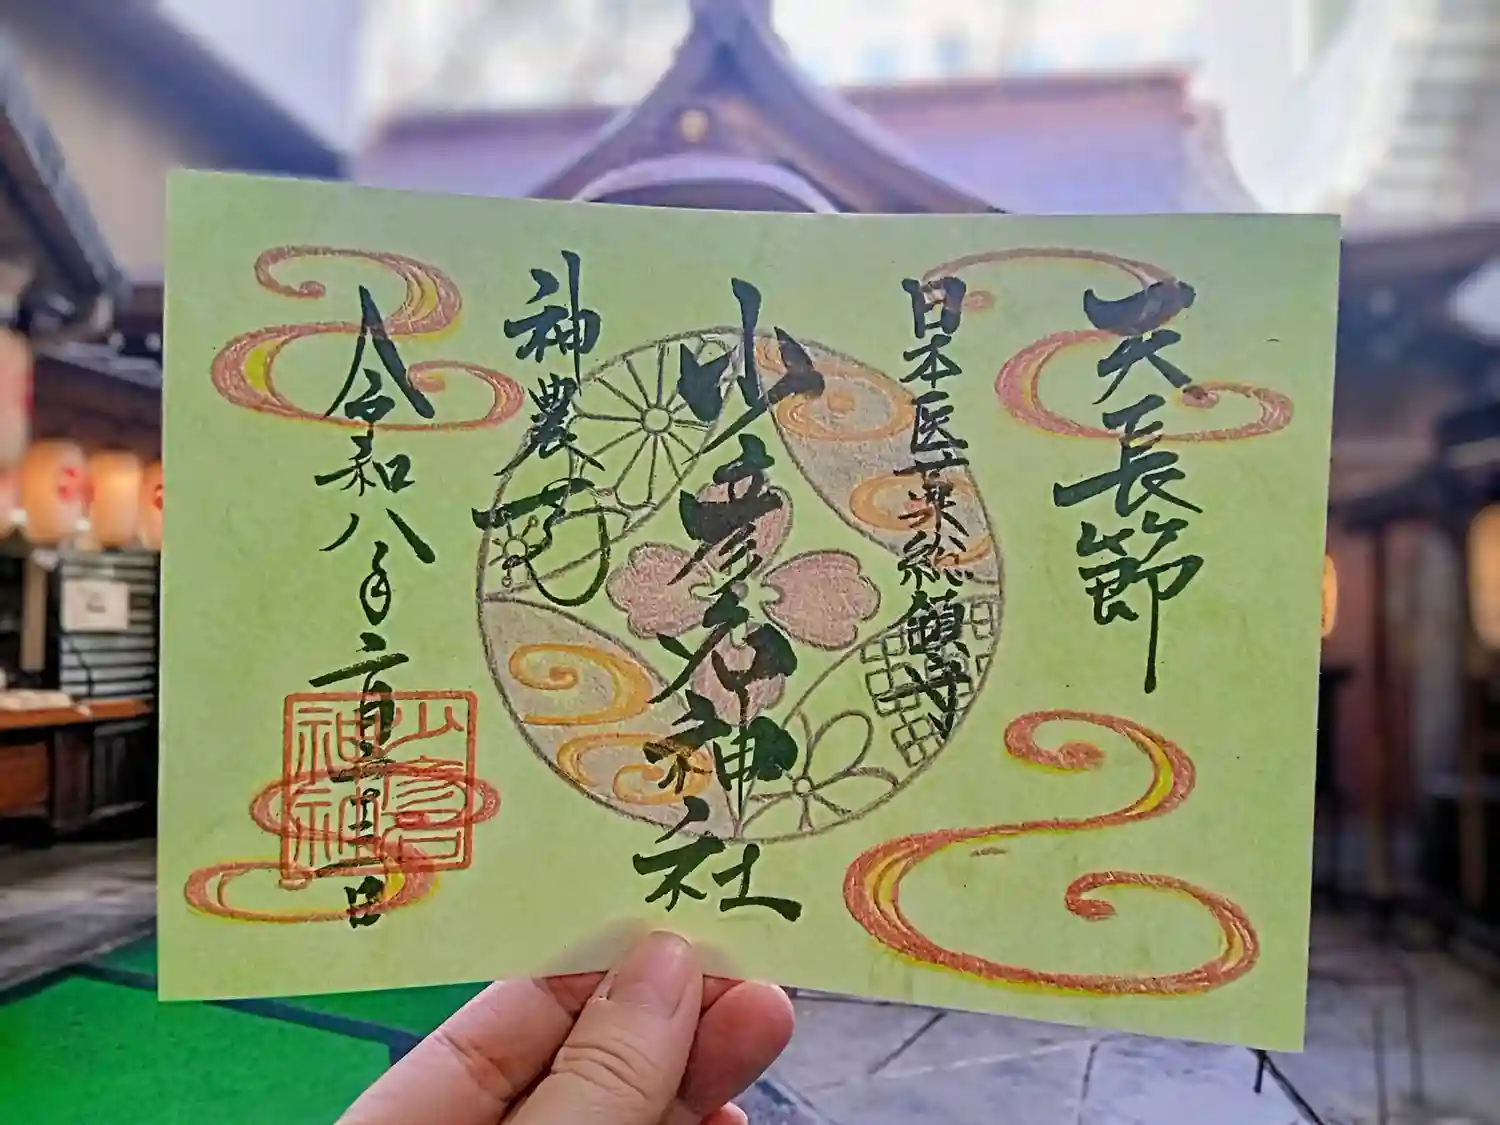 天長節
日本医薬総鎮守
少彦名神社
神農
令和八年二月二十三日
少彦名
神社